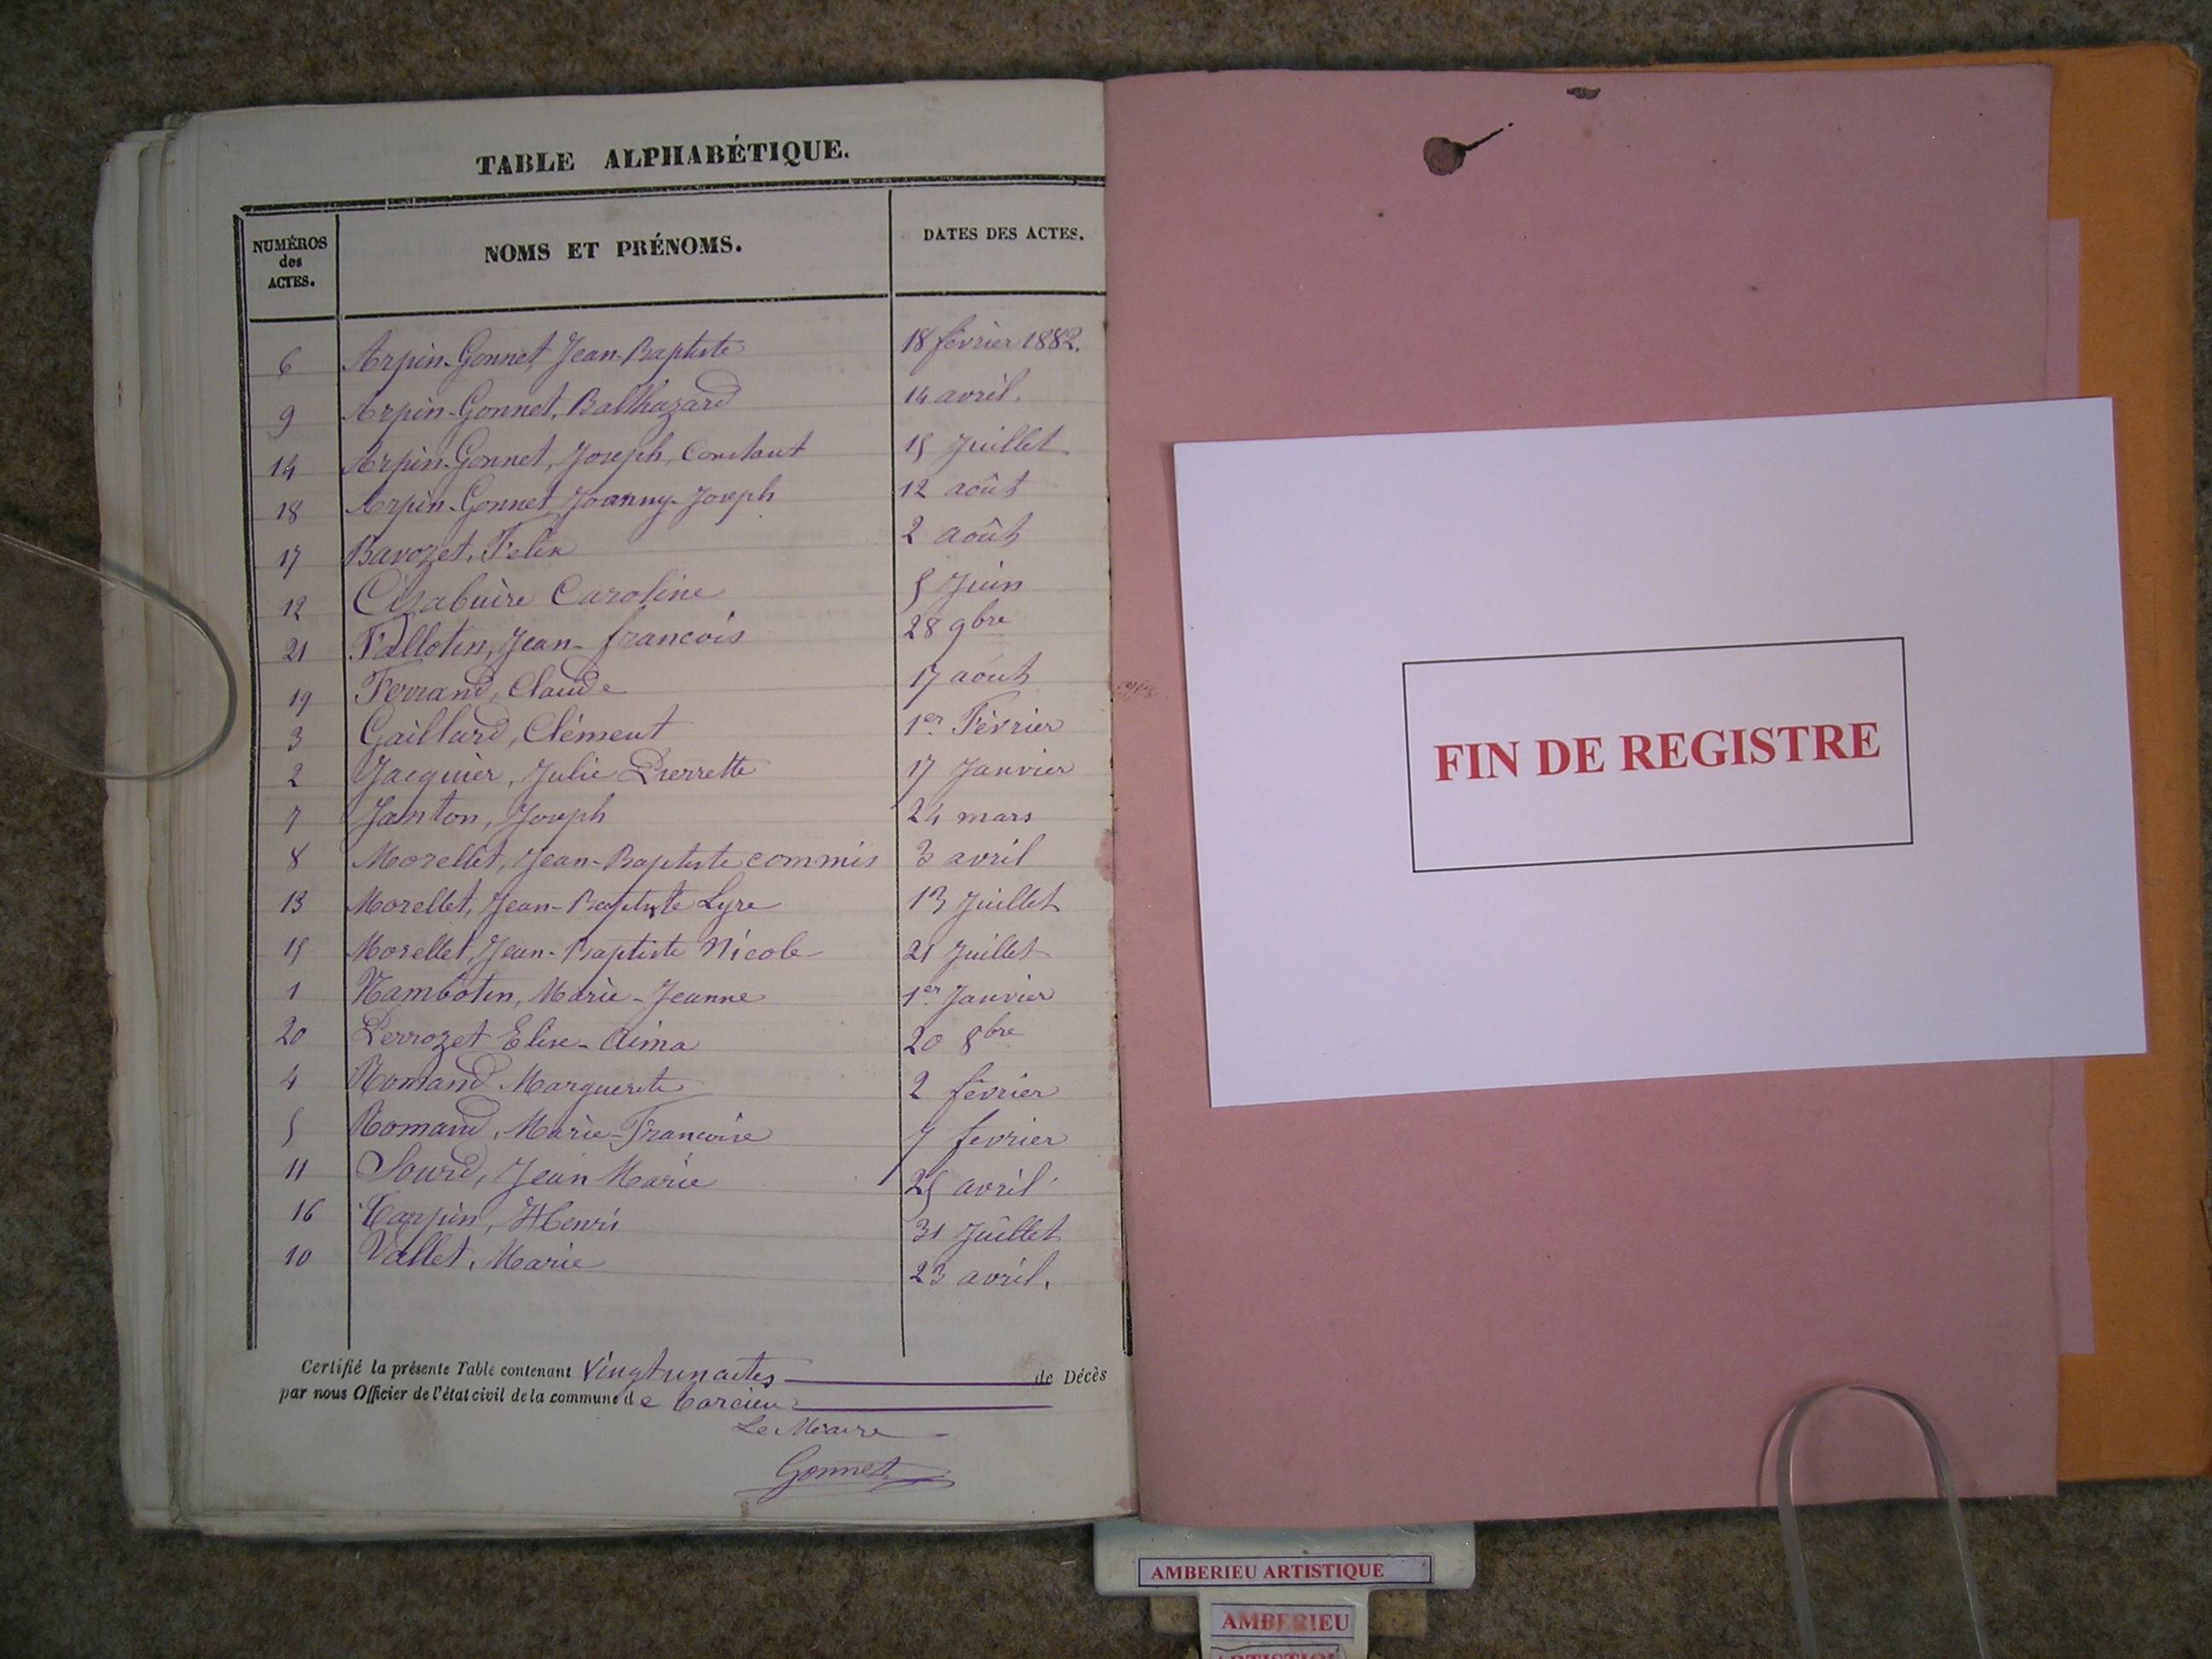 TABLE ALPHABÉTIQUE.
NUMÉROS des ACTES. NOMS ET PRÉNOMS. DATES DES ACTES.
6 Arpin-Gonnet, Jean-Baptiste 18 février 1882.
9 Arpin-Gonnet, Balthazard 14 avril.
14 Arpin-Gonnet, Joseph, Constant 15 Juillet
18 Arpin-Gonnet Joanny-Joseph 12 août
17 Bavozet, Felix 2 août
12 Cizabuire Caroline 5 Juin
21 Fallotin, Jean-francois 28 9bre
19 Ferrand, Claude 17 aout
3 Gaillard, Clément 1er Février
2 Jacquier, Julie Pierrette 17 Janvier
7 Janton, Joseph 24 mars
8 Morellet, Jean-Baptiste commis 3 avril
13 Morellet, Jean-Baptiste Lyre 13 Juillet
15 Morellet, Jean-Baptiste Nicole 21 Juillet
1 Nambotin, Marie-Jeanne 1er Janvier
20 Perrozet Elise-Aima 20 8bre
4 Romand Marguerite 2 février
5 Romand, Marie-Francoise 7 fevrier
11 Sourd, Jean Marie 25 avril
16 Tarpin, Henri 31 Juillet
10 Vallet, Marie 23 avril.
Certifié la présente Table contenant Vingt un actes de Décès
par nous Officier de l'état civil de la commune de Torcieu
Le Maire
Gonnet
FIN DE REGISTRE
AMBERIEU ARTISTIQUE
AMBERIEU
ARTISTIQUE